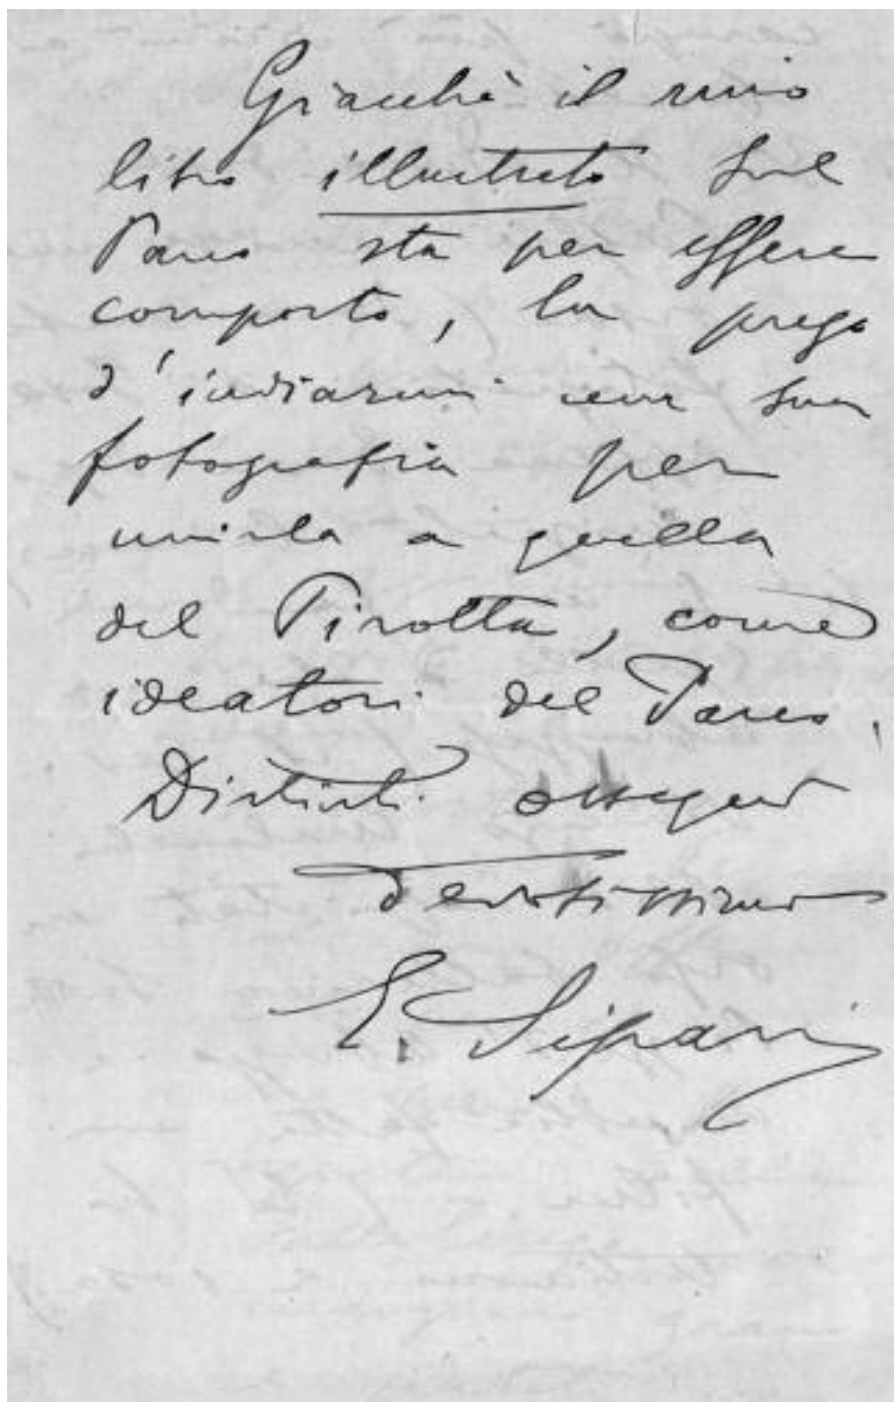 Giacchè il mio
libro illustrato sul
Parco sta per essere
composto, la prego
d'inviarmi una sua
fotografia per
unirla a quella
del Pirotta, come
ideatori del Parco.
Distinti ossequi
devotissimo
E. Sipari